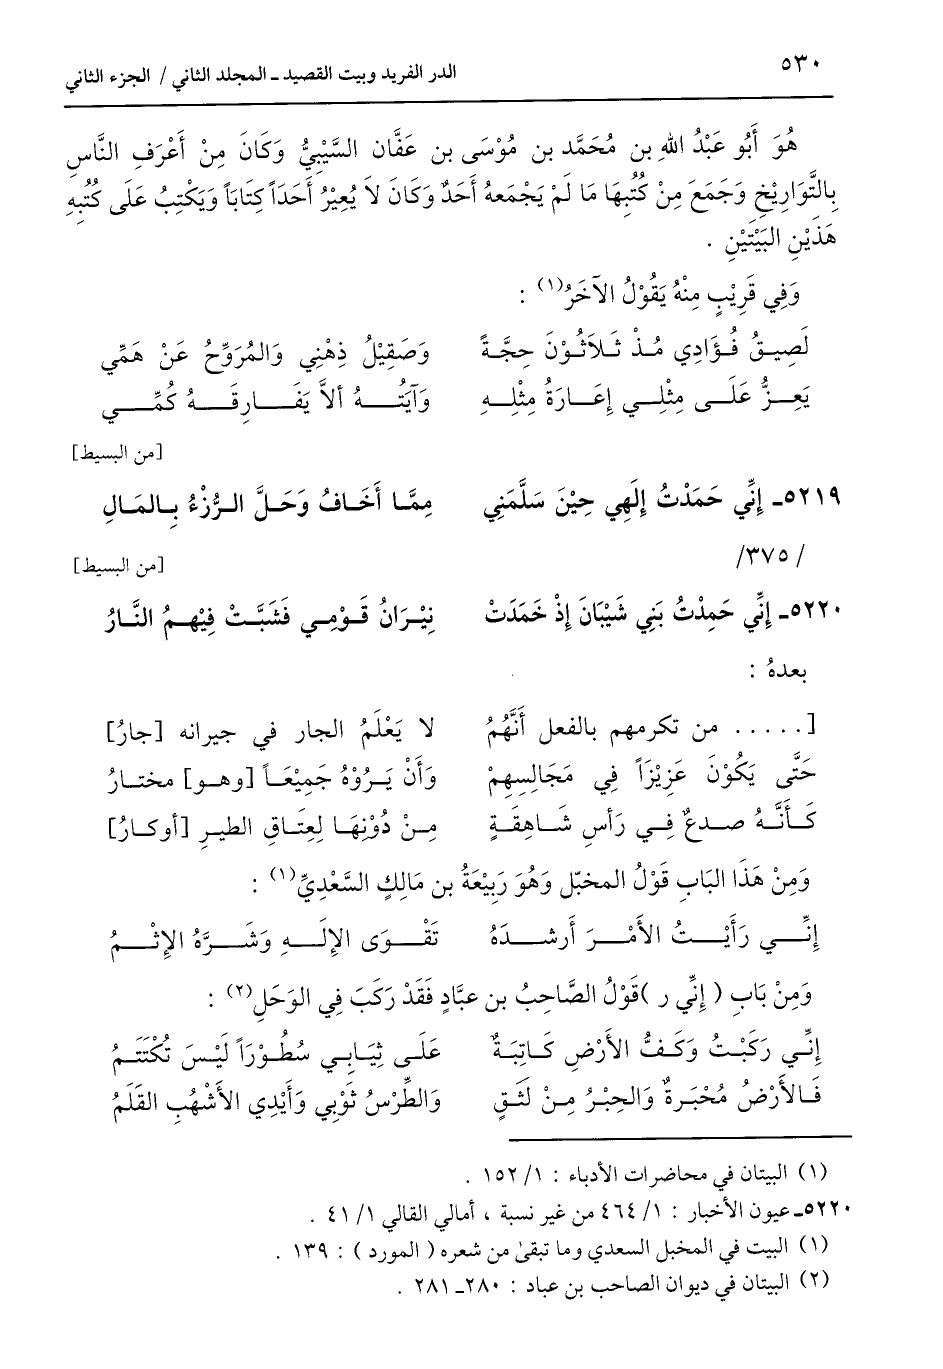 ٥٣٠
الدر الفريد وبيت القصيد ـ المجلد الثاني / الجزء الثاني
هُوَ أَبُو عَبْدُ اللهِ بن مُحَمَّد بن مُوْسَى بن عَفَّان السَّيْبِيُّ وَكَانَ مِنْ أَعْرَفِ النَّاسِ
بِالتَّوَارِيْخِ وَجَمَعَ مِنْ كُتُبِهَا مَا لَمْ يَجْمَعهُ أَحَدٌ وَكَانَ لاَ يُعِيْرُ أَحَداً كِتَاباً وَيَكْتِبُ عَلَى كُتُبِهِ
هَذَيْنِ البَيْتَيْنِ .
وَفِي قَرِيْبٍ مِنْهُ يَقُوْلُ الآخَرُ(١) :
لَصِيقُ فُؤَادِي مُذْ ثَلاَثُوْنَ حِجَّةً وَصَقِيْلُ ذِهْنِي وَالمُرَوِّحُ عَنْ هَمِّي
يَعِزُّ عَلَى مِثْلِي إِعَارَةُ مِثْلِهِ وَآيَتُهُ ألاَّ يَفَارِقَهُ كُمِّي
[من البسيط]
٥٢١٩ـ إِنِّي حَمَدْتُ إِلَهِي حِيْنَ سَلَّمَنِي مِمَّا أَخَافُ وَحَلَّ الرُّزْءُ بِالمَالِ
/ ٣٧٥/
[من البسيط]
٥٢٢٠ـ إِنِّي حَمِدْتُ بَنِي شَيْبَانَ إِذْ خَمَدَتْ نِيْرَانُ قَوْمِي فَشَبَّتْ فِيْهِمُ النَّارُ
بعدهُ :
[..... من تكرمهم بالفعل أَنَّهُمُ لا يَعْلَمُ الجار في جيرانه [جارُ]
حَتَّى يَكُوْنَ عَزِيْزَاً فِي مَجَالِسِهِمْ وَأَنْ يَرُوْهُ جَمِيْعَاً [وهو] مختارُ
كَأَنَّهُ صدعٌ فِي رَأسِ شَاهِقَةٍ مِنْ دُوْنِهَا لِعِتَاقِ الطيرِ [أوكارُ]
وَمِنْ هَذَا البَابِ قَوْلُ المخبّل وَهُوَ رَبِيْعَةُ بن مَالِكٍ السَّعْدِيِّ(١) :
إِنِّي رَأَيْتُ الأَمْرَ أَرشدَهُ تَقْوَى الإِلَهِ وَشَرَّهُ الإِثْمُ
وَمِنْ بَابِ ( إِنِّي ر )قَوْلُ الصَّاحِبُ بن عبَّادٍ فَقَدْ رَكَبَ فِي الوَحَلِ(٢) :
إِنِّي رَكَبْتُ وَكَفُّ الأَرْضِ كَاتِبَةٌ عَلَى ثِيَابِي سُطُوْرَاً لَيْسَ تُكْتَتَمُ
فَالأَرْضُ مُحْبَرةٌ وَالحِبْرُ مِنْ لَثَقٍ وَالطِّرْسُ ثَوْبِي وَأَيْدِي الأَشْهُبِ القَلَمُ
(١) البيتان في محاضرات الأدباء : ١/ ١٥٢ .
٥٢٢٠ـ عيون الأخبار : ١/ ٤٦٤ من غير نسبة ، أمالي القالي ١/ ٤١ .
(١) البيت في المخبل السعدي وما تبقىٰ من شعره ( المورد ) : ١٣٩ .
(٢) البيتان في ديوان الصاحب بن عباد : ٢٨٠ـ ٢٨١ .